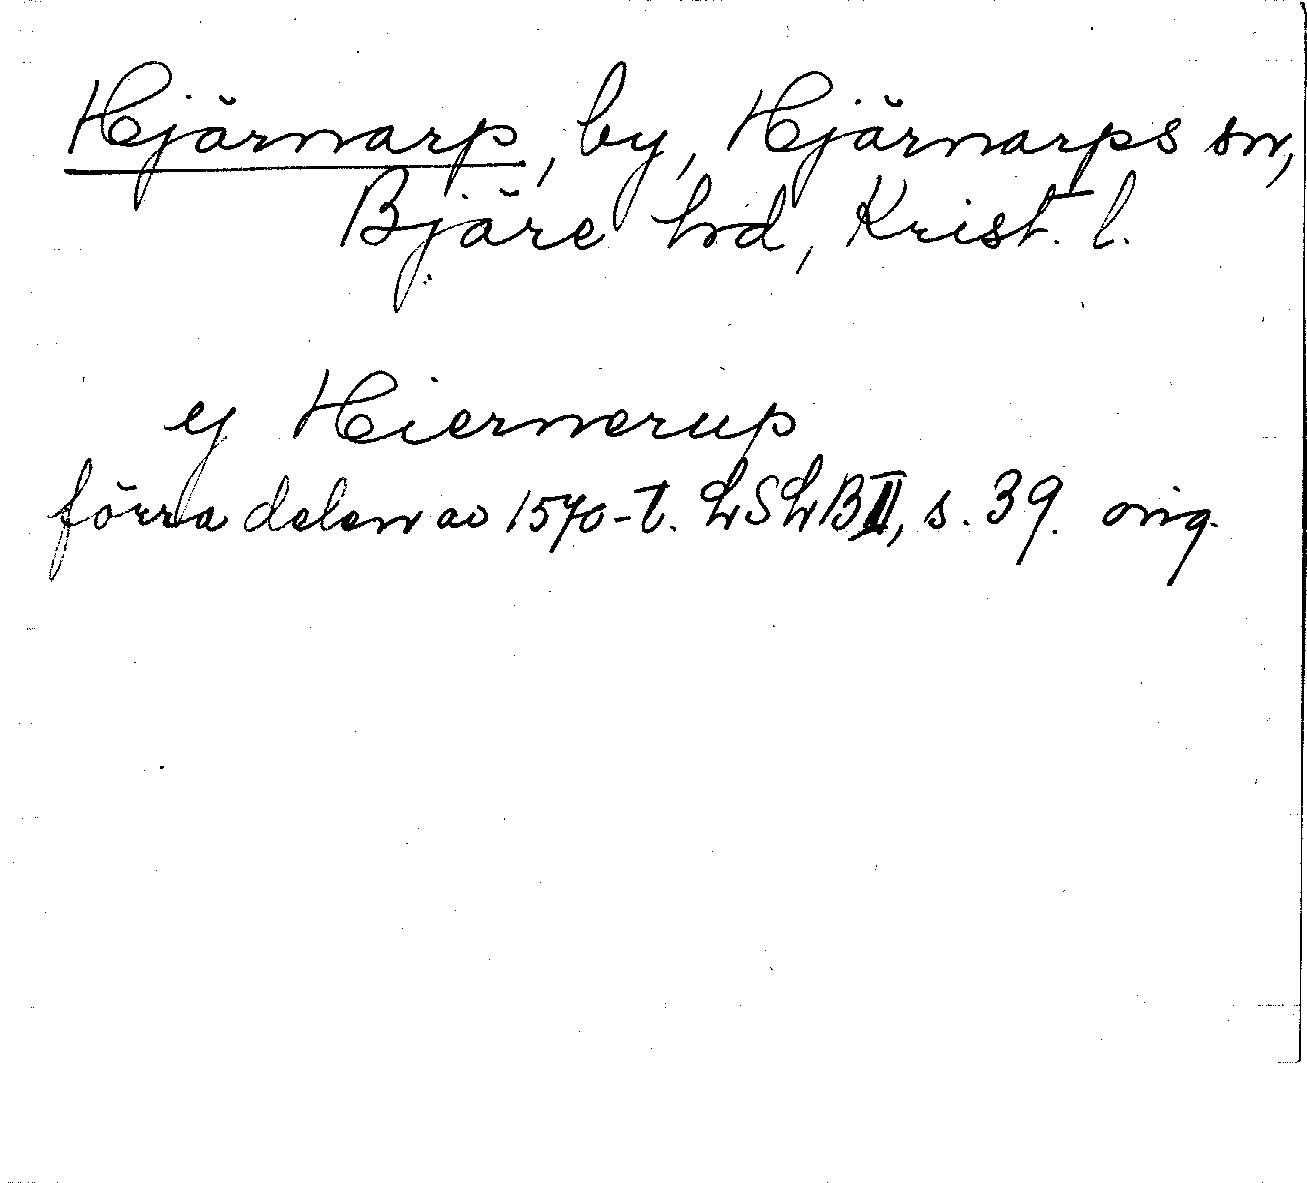 Hjärnarp, by, Hjärnarps sn,
Bjäre hd, Krist. l.
ey Hiernerup
förra delen av 1570-t. LSLB II, s. 39. orig.